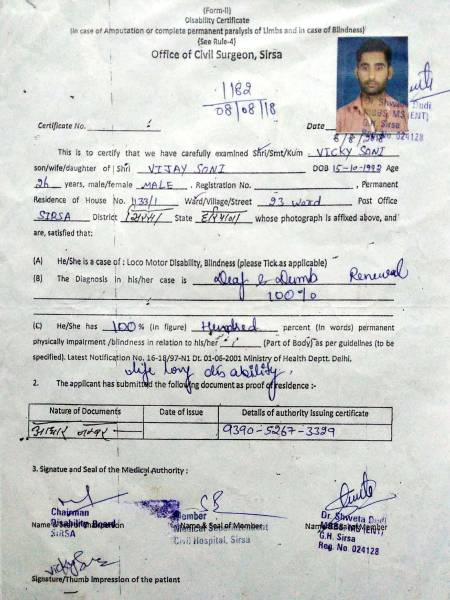 (Form-II)
Disability Certificate
(In case of Amputation or complete permanent paralysis of Limbs and in case of Blindness)
(See Rule-4)
Office of Civil Surgeon, Sirsa
1182
08/08/18
Dr. Shweta Dudi
MBBS, MS (ENT)
G.H. Sirsa
Reg. No. 024128
Certificate No. Date 8/8/2018
This is to certify that we have carefully examined Shri/Smt/Kum VICKY SONI
son/wife/daughter of Shri VIJAY SONI DOB 15-10-1992 Age
26 years, male/female MALE, Registration No. , Permanent
Residence of House No. 1133/1 Ward/Village/Street 23 ward Post Office
SIRSA District सिरसा State हरियाणा whose photograph is affixed above, and
are, satisfied that:
(A) He/She is a case of : Loco Motor Disability, Blindness (please Tick as applicable)
(B) The Diagnosis in his/her case is Deaf & Dumb Renewal
100%
(C) He/She has 100 % (in figure) Hundred percent (In words) permanent
physically impairment /blindness in relation to his/her (Part of Body) as per guidelines (to be
specified). Latest Notification No. 16-18/97-N1 Dt. 01-06-2001 Ministry of Health Deptt. Delhi.
life long disability
2. The applicant has submitted the following document as proof of residence :-
Nature of Documents Date of Issue Details of authority issuing certificate
आधार नम्बर 9390-5267-3329
3. Signatue and Seal of the Medical Authority :
Chairman Member Dr. Shweta Dudi
Name & Seal of Chairperson Name & Seal of Member Name & Seal of Member
Disability Board Medical Department MBBS, MS (ENT)
SIRSA Civil Hospital, Sirsa G.H. Sirsa
Reg. No. 024128
Signature/Thumb Impression of the patient